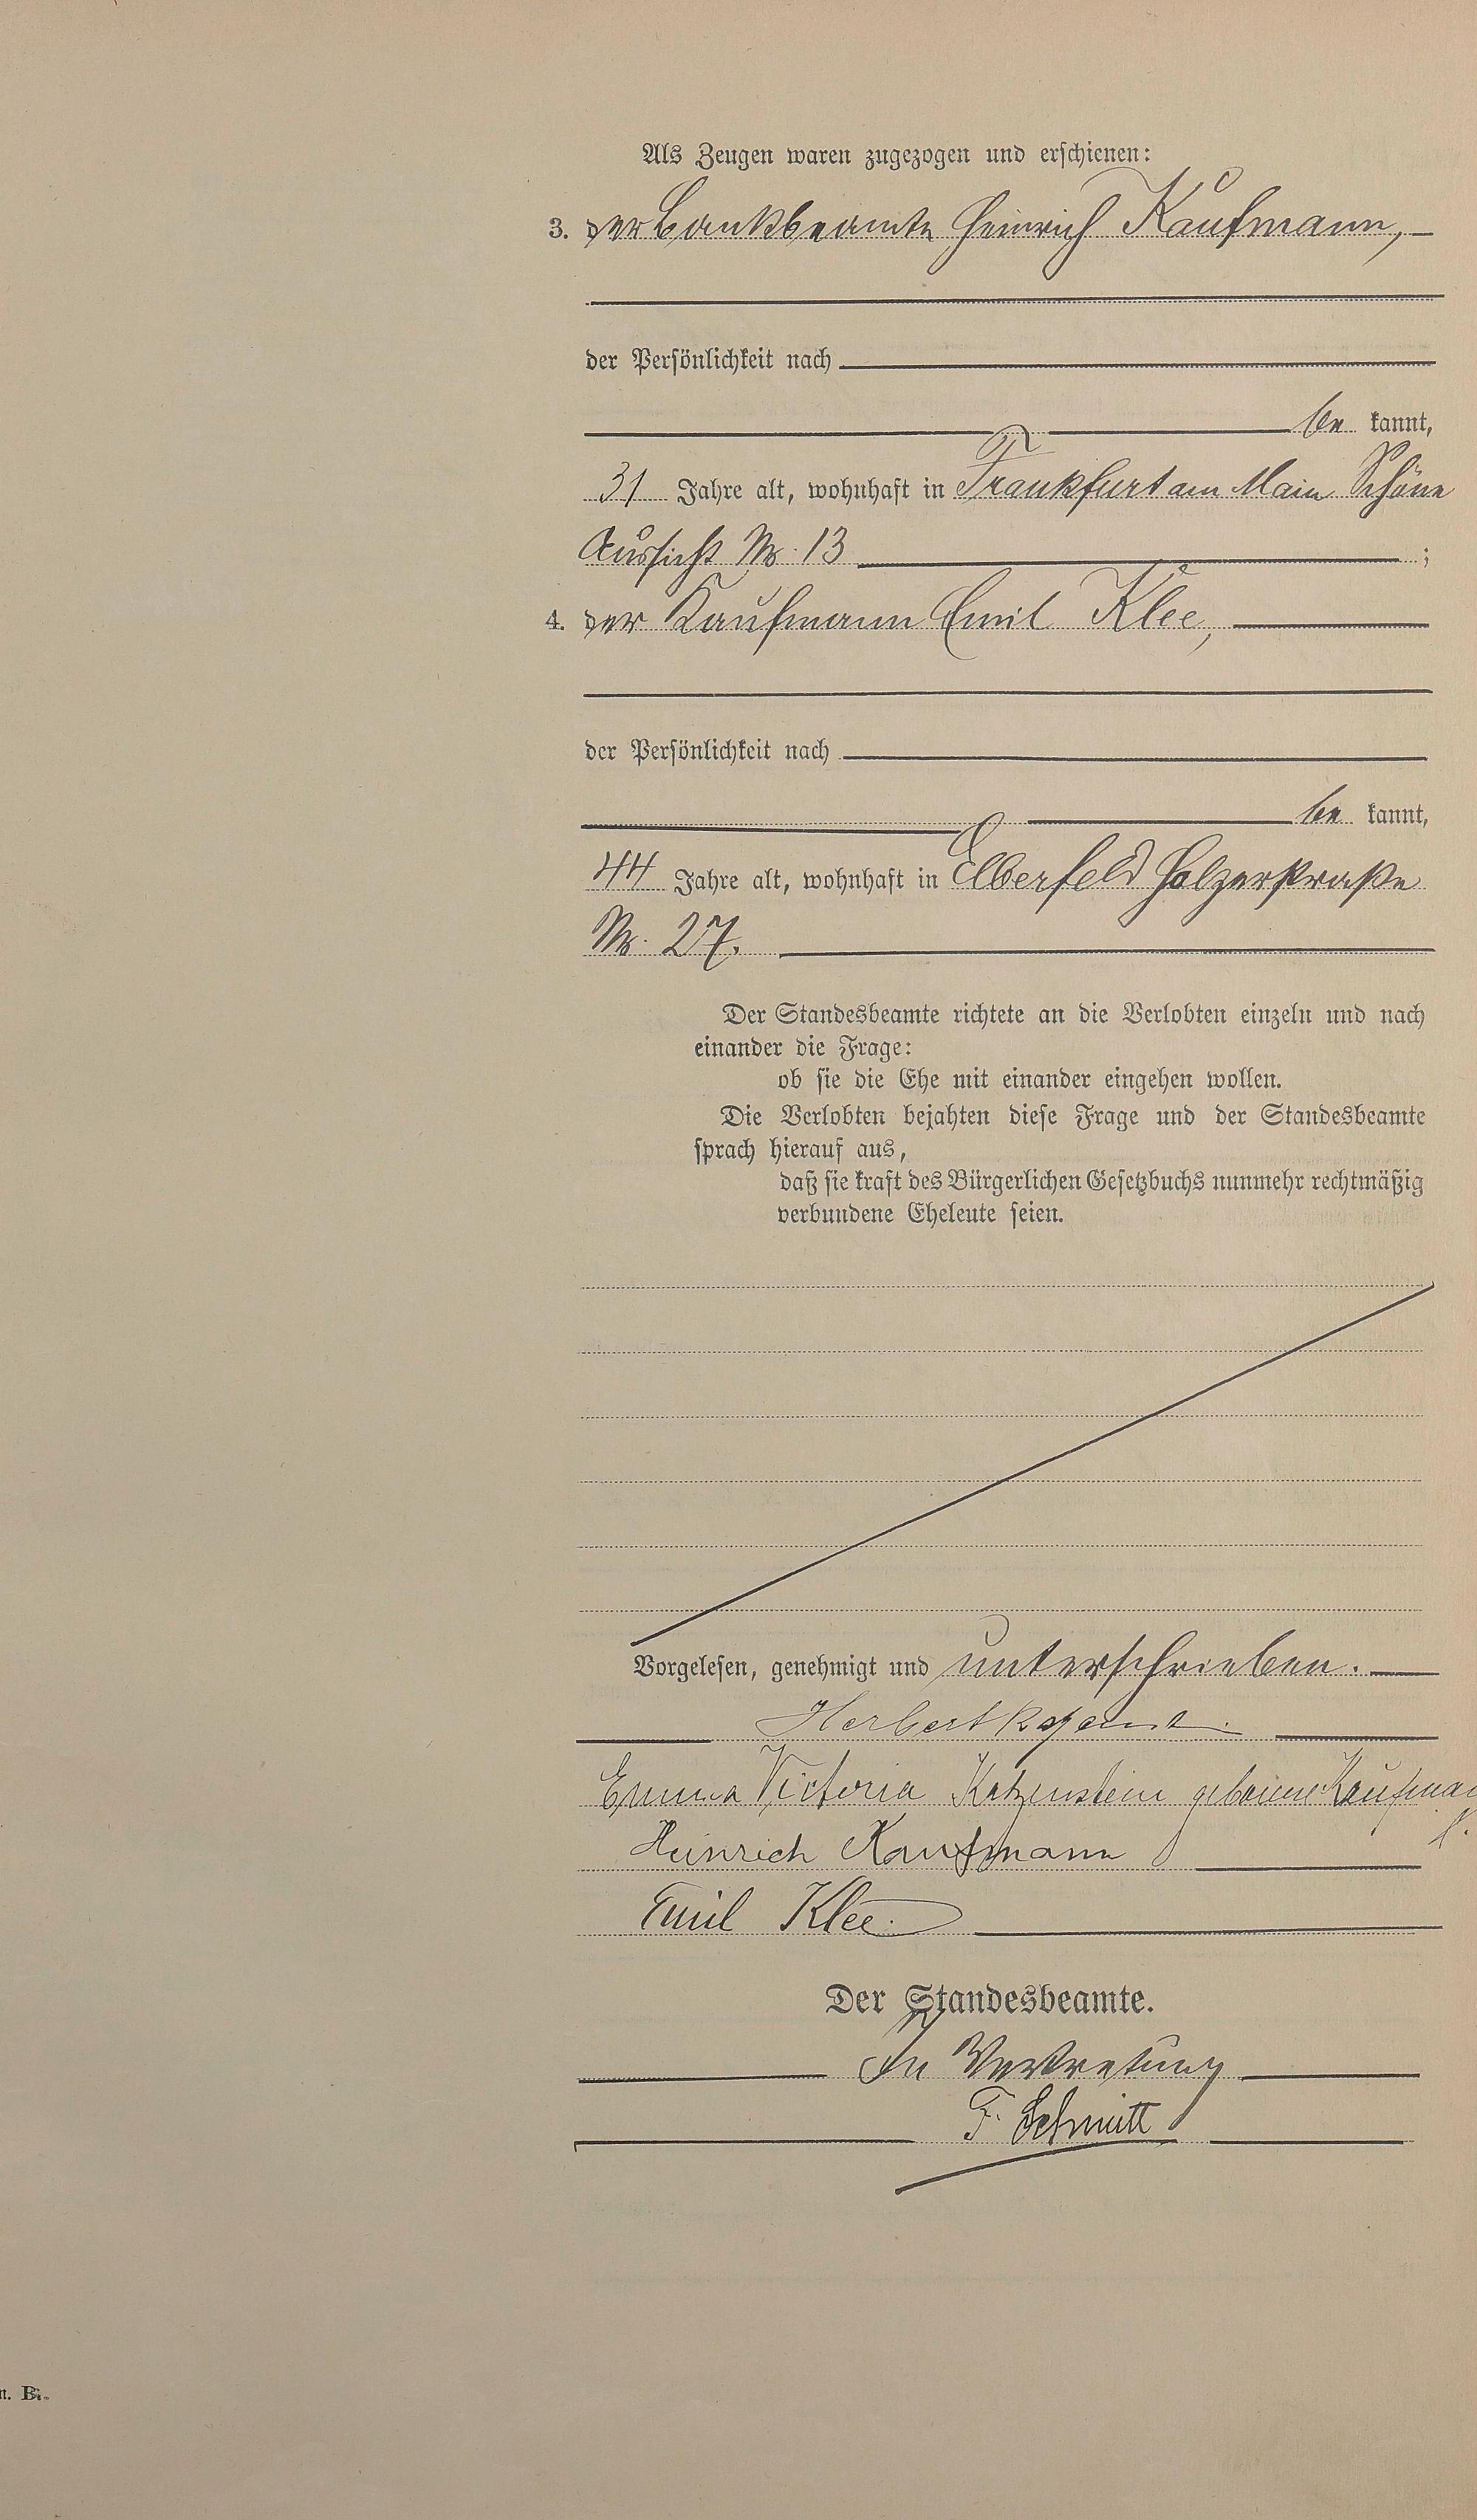 Als Zeugen waren zugezogen und erschienen:
3. der Bankbeamte Heinrich Kaufmann,
der Persönlichkeit nach
be kannt,
31 Jahre alt, wohnhaft in Frankfurt am Main Schöne
Aussicht Nr. 13 ;
4. der Kaufmann Emil Klee,
der Persönlichkeit nach
be kannt,
44 Jahre alt, wohnhaft in Elberfeld Holzerstraße
Nr. 27.
Der Standesbeamte richtete an die Verlobten einzeln und nach
einander die Frage:
ob sie die Ehe mit einander eingehen wollen.
Die Verlobten bejahten diese Frage und der Standesbeamte
sprach hierauf aus,
daß sie kraft des Bürgerlichen Gesetzbuchs nunmehr rechtmäßig
verbundene Eheleute seien.
Vorgelesen, genehmigt und unterschrieben.
Herbert Katzenstein
Emma Victoria Katzenstein geborene Kaufman
Heinrich Kaufmann
Emil Klee.
Der Standesbeamte.
In Vertretung
F. Schmitt
B.